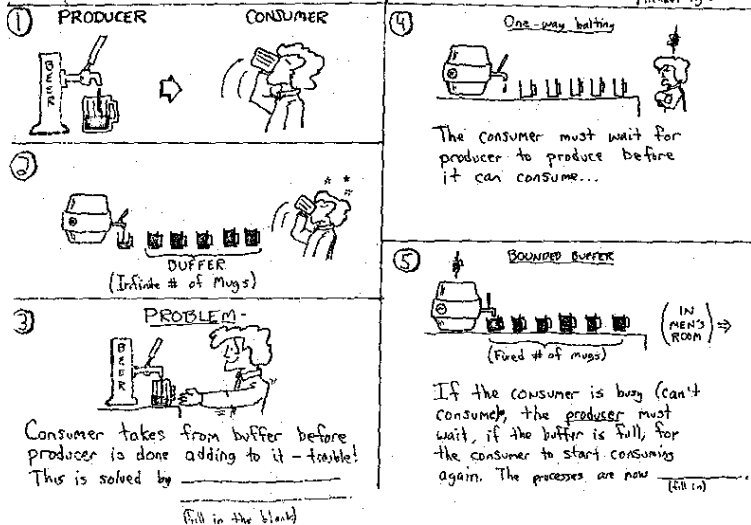 ① PRODUCER
CONSUMER
BEER
②
BUFFER
(Infinite # of Mugs)
③ PROBLEM-
BEER
Consumer takes from buffer before
producer is done adding to it - trouble!
This is solved by
(fill in the blank)
④ One-way waiting
The consumer must wait for
producer to produce before
it can consume...
⑤ BOUNDED BUFFER
(IN
MEN'S
ROOM) ⇒
(Fixed # of mugs)
If the consumer is busy (can't
consume), the producer must
wait, if the buffer is full, for
the consumer to start consuming
again. The processes are now
(fill in)